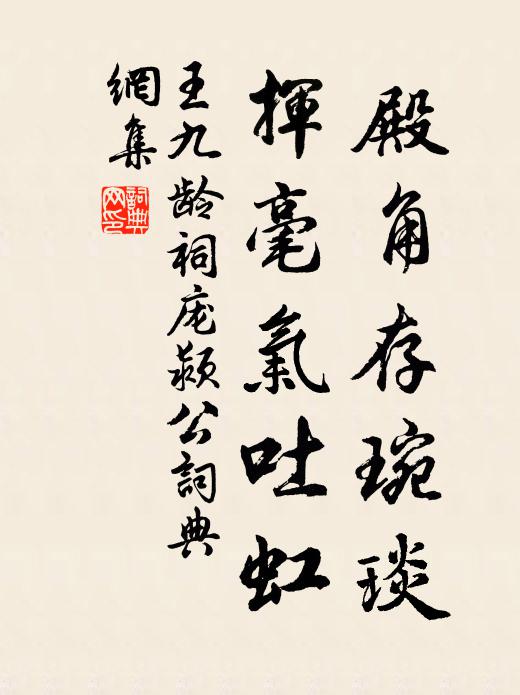 殿角存琬琰
揮毫氣吐虹
王九龄祠庞颍公詞典
網集
詞典
网印